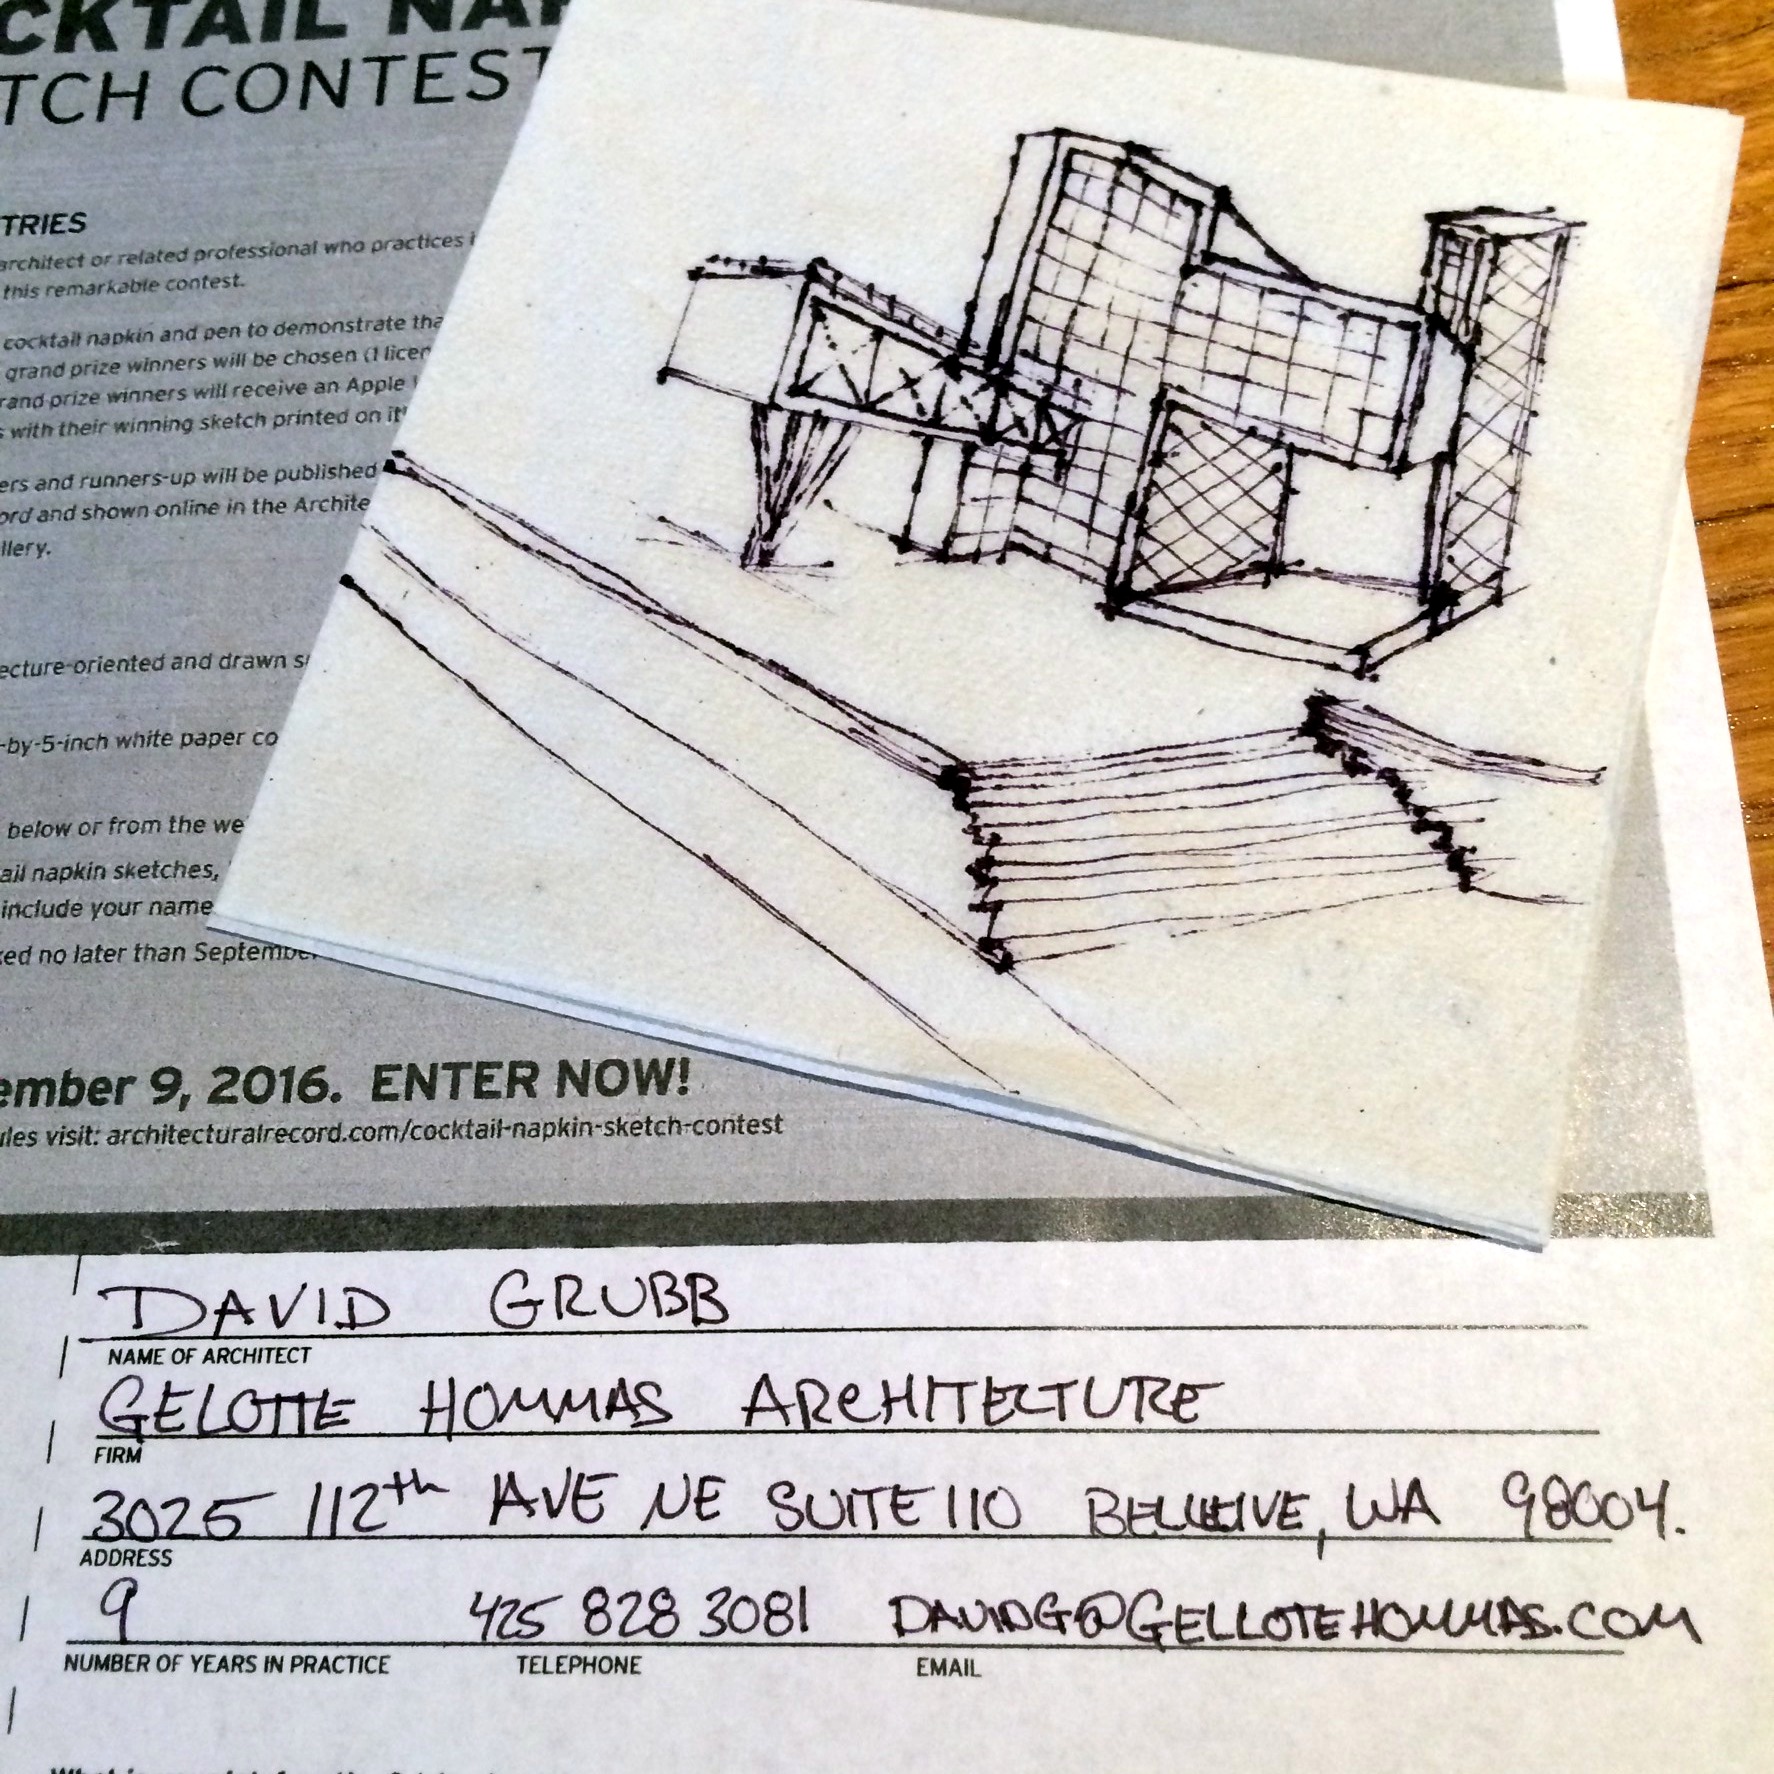 CKTAIL NAP
TCH CONTEST
TRIES
architect or related professional who practices i
this remarkable contest.
cocktail napkin and pen to demonstrate tha
grand prize winners will be chosen (1 licen
rand prize winners will receive an Apple
s with their winning sketch printed on it
ers and runners-up will be published
ord and shown online in the Archite
llery.
ecture-oriented and drawn s
-by-5-inch white paper co
below or from the we
ail napkin sketches,
include your name
ked no later than September
ember 9, 2016. ENTER NOW!
ules visit: architecturalrecord.com/cocktail-napkin-sketch-contest
DAVID GRUBB
NAME OF ARCHITECT
GELOTTE HOMMAS ARCHITECTURE
FIRM
3025 112th AVE NE SUITE 110 BELLEVUE, WA 98004.
ADDRESS
9 425 828 3081 DAVIDG@GELLOTEHOMMAS.COM
NUMBER OF YEARS IN PRACTICE TELEPHONE EMAIL